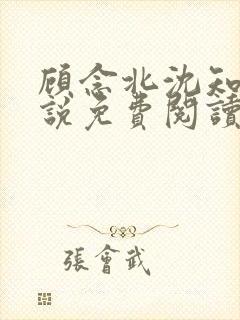 顾念北沈知
說免費閱讀
張會武